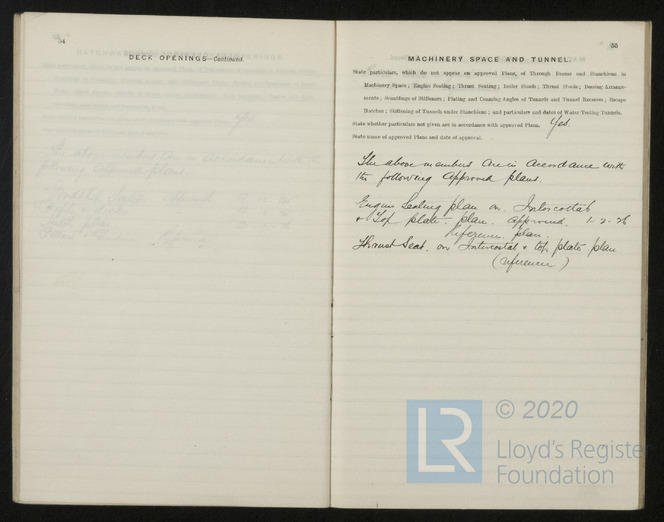 54
DECK OPENINGS—Continued.
55
MACHINERY SPACE AND TUNNEL.
State particulars, which do not appear on approved Plans, of Through Beams and Stanchions in
Machinery Space; Engine Seating; Thrust Seating; Boiler Stools; Thrust Stools; Donkey Arrange-
ments; Scantlings of Stiffeners; Plating and Coaming Angles of Tunnels and Tunnel Recesses; Escape
Hatches; Stiffening of Tunnels under Stanchions; and particulars and dates of Water Testing Tunnels.
State whether particulars not given are in accordance with approved Plans. Yes.
State name of approved Plans and date of approval.
The above members are in accordance with
the following approved plans.
Engine Seating plan on Intercostal
& Top plate plan. approved. 1-2-26
reference plan.
Thrust Seat. on Intercostal & top plate plan
(reference)
LR © 2020
Lloyd's Register
Foundation